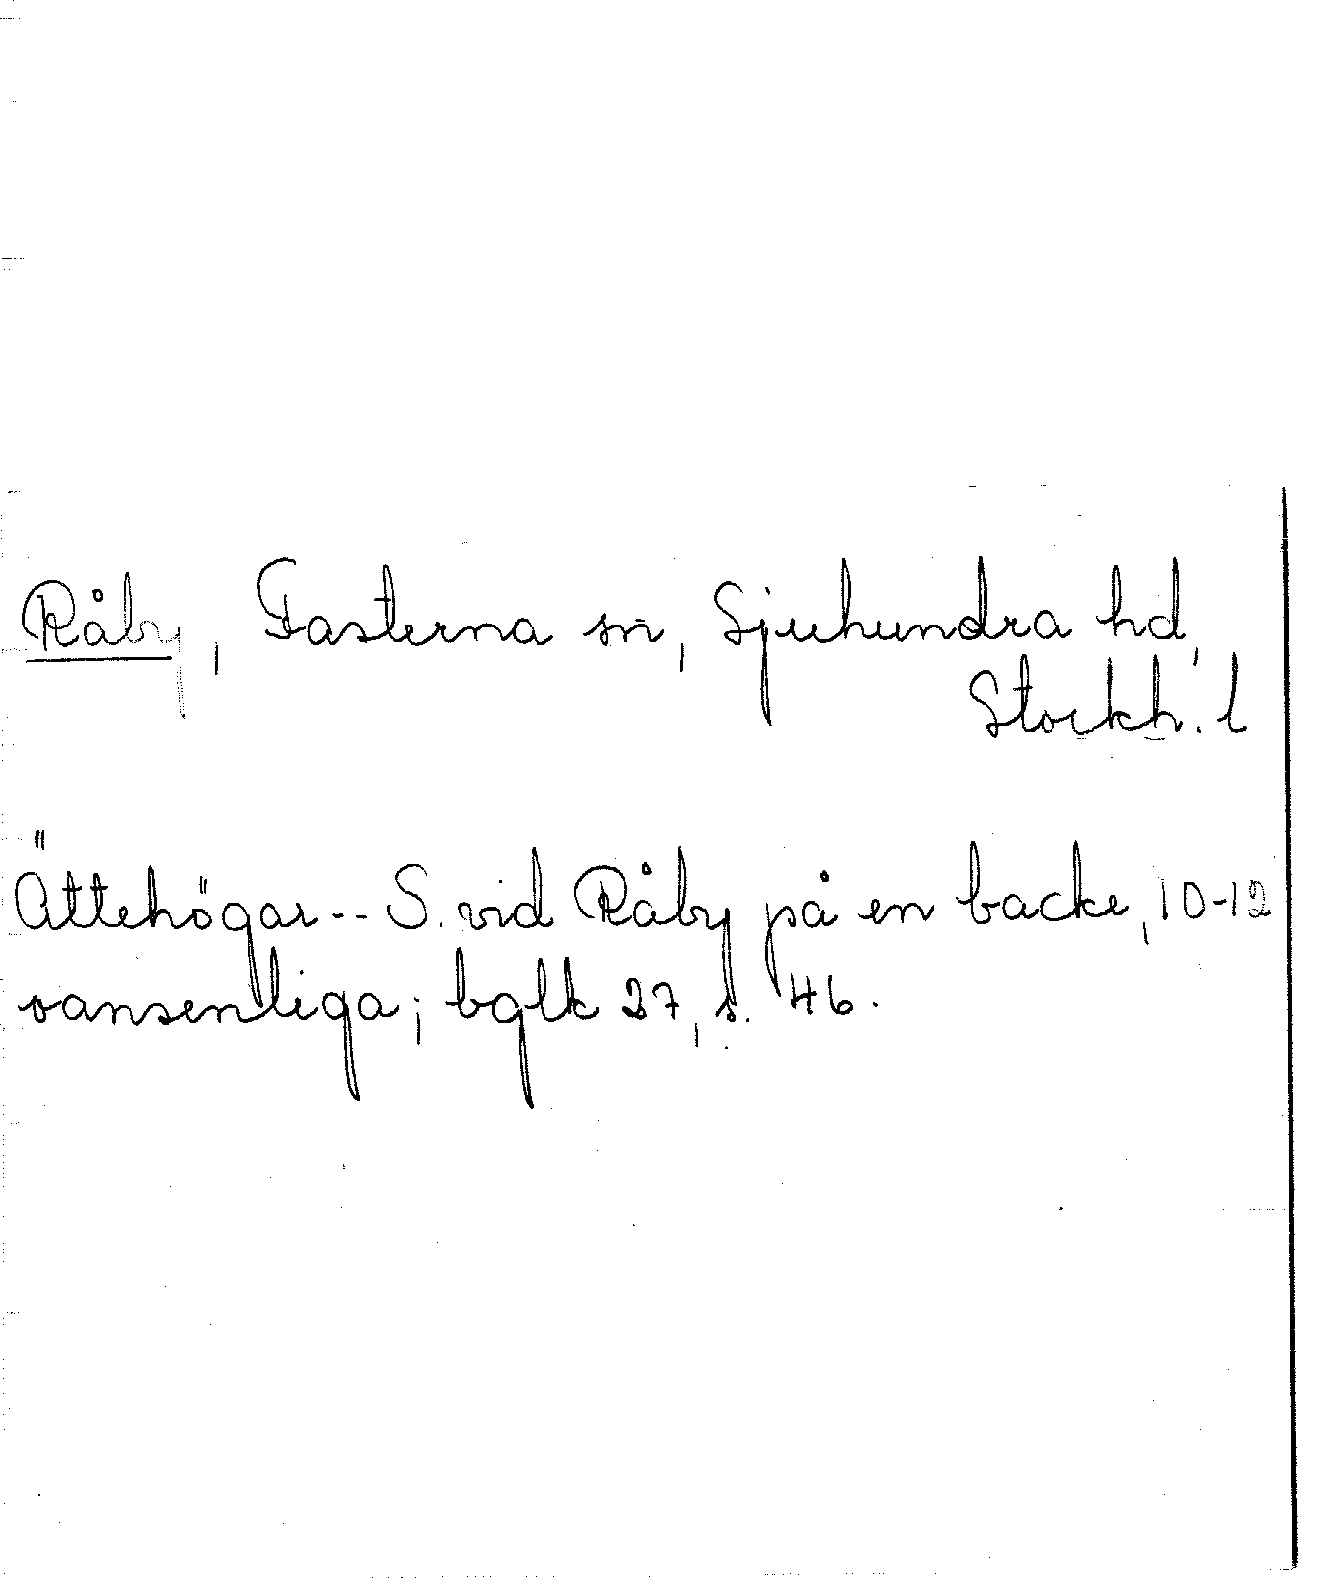 Råby, Fasterna sn, Sjuhundra hd,
Stockh. l
Ättehögar -- S. vid Råby på en backe, 10-12
oansenliga; bglk 27, s. 46.